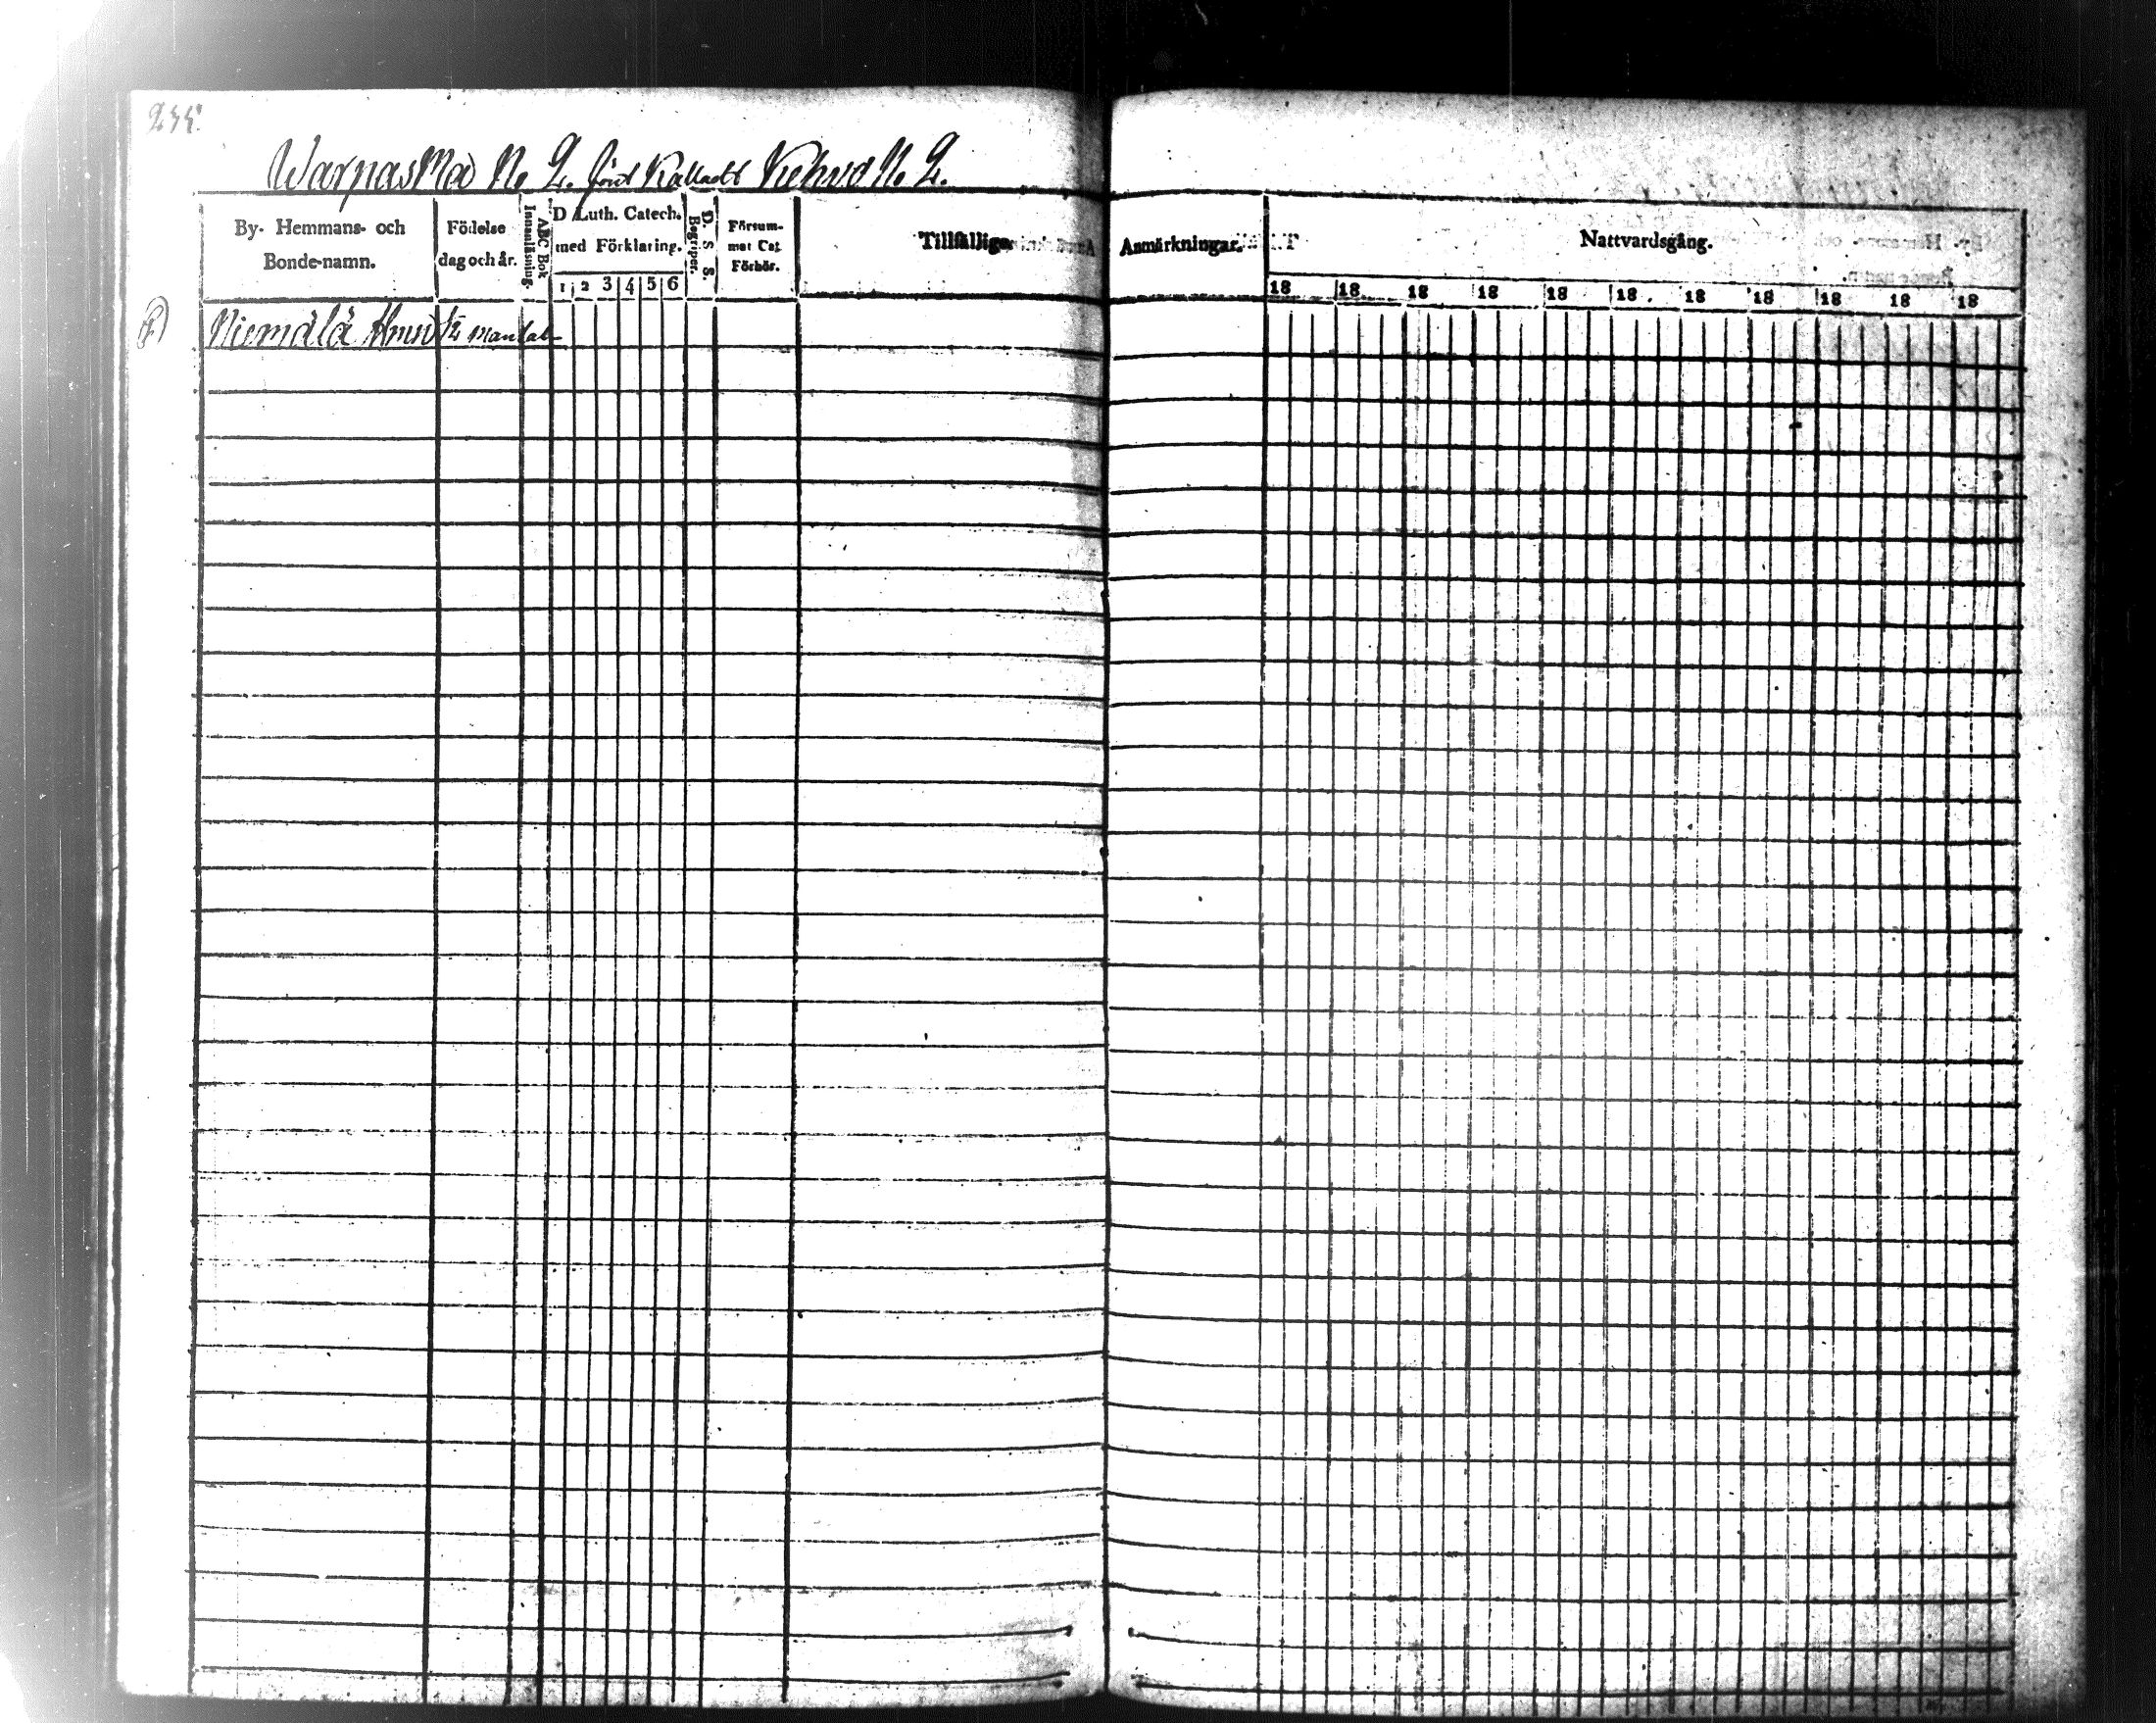 235.
Warpasmä N. 2. förut Kalladt Kehvo N. 2.
By- Hemmans- och Bonde-namn.
Födelse dag och år.
ABC Bok Innanläsning.
D Luth. Catech. med Förklaring.
1 2 3 4 5 6
D. S. S. Begriper.
Försum- mat Cat. Förhör.
Tillfällige
Anmärkningar.
Nattvardsgång.
18 18 18 18 18 18 18 18 18 18 18
Niemälä Hmn ½ Mantal